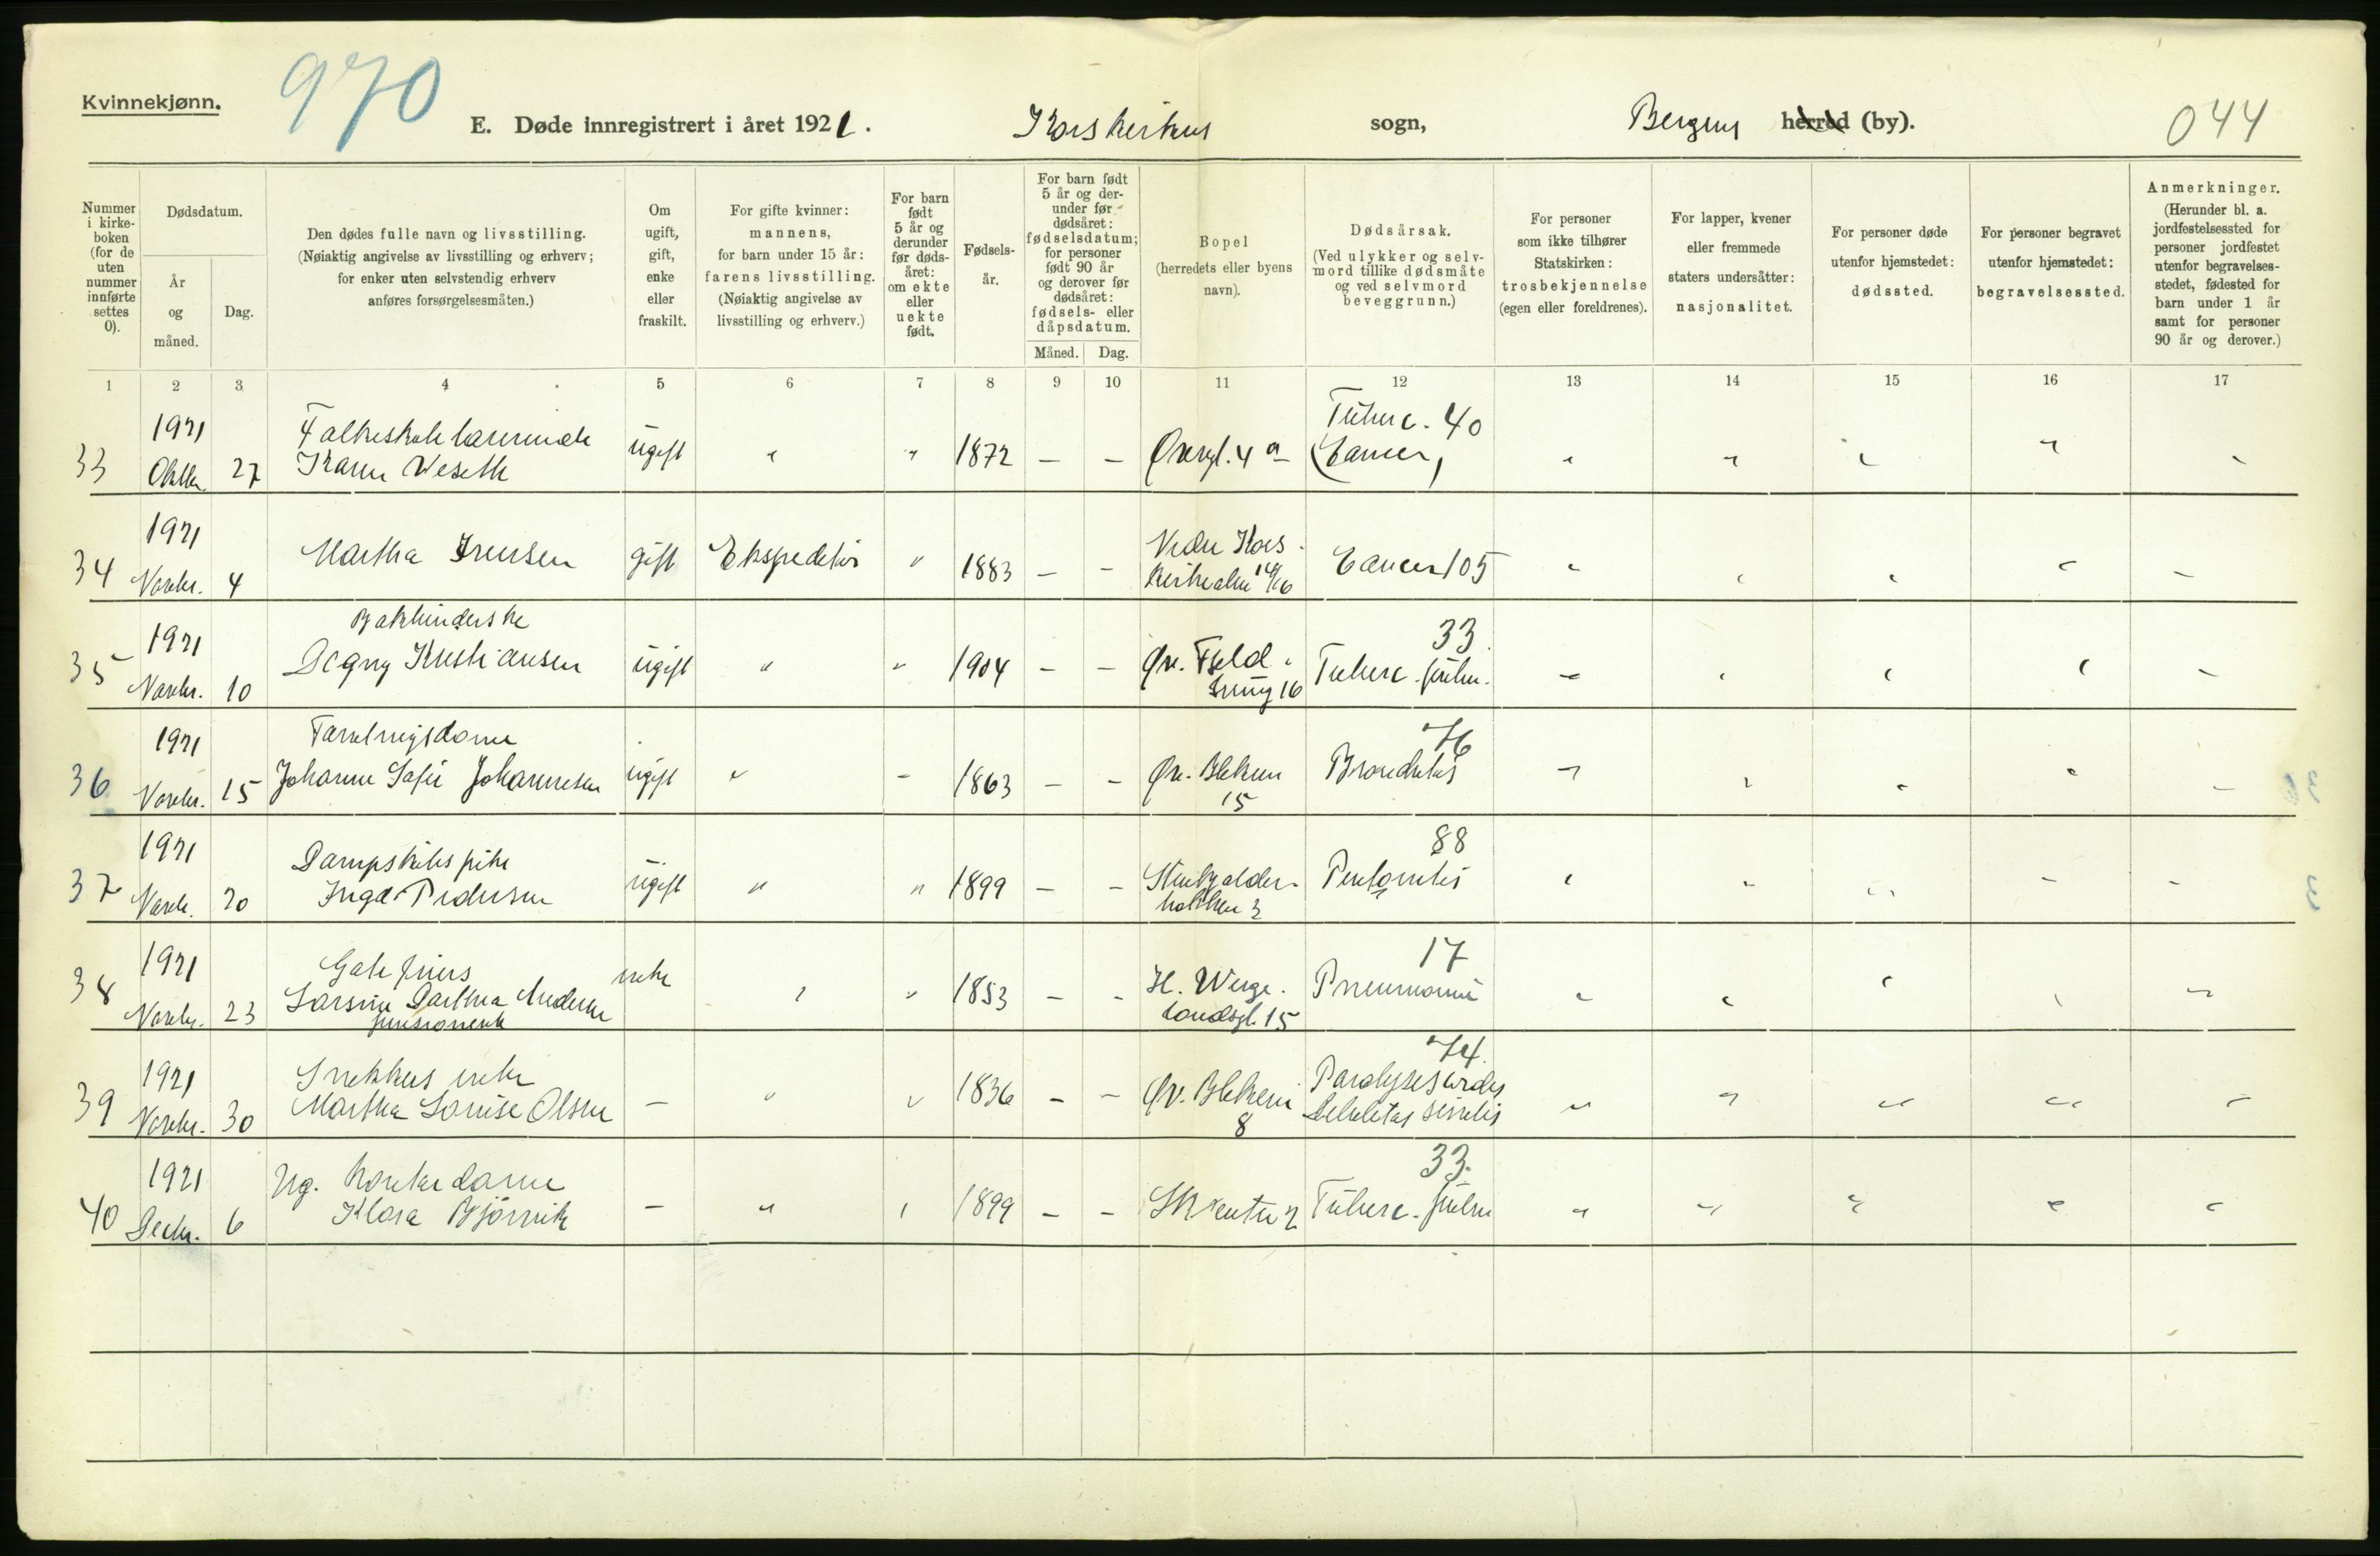 Kvinnekjønn.
970
E. Døde innregistrert i året 1921.
Korskirkens
sogn,
Bergens
herred (by).
044
Nummer i kirke-boken (for de uten nummer innførte settes 0).
Dødsdatum.
År og måned.
Dag.
Den dødes fulle navn og livsstilling.
(Nøiaktig angivelse av livsstilling og erhverv;
for enker uten selvstendig erhverv
anføres forsørgelsesmåten.)
Om ugift, gift, enke eller fraskilt.
For gifte kvinner:
mannens,
for barn under 15 år:
farens livsstilling.
(Nøiaktig angivelse av
livsstilling og erhverv.)
For barn født 5 år og derunder før døds-året: om ekte eller uekte født.
Fødsels-år.
For barn født 5 år og der-under før dødsåret: fødselsdatum; for personer født 90 år og derover før dødsåret: fødsels- eller dåpsdatum.
Måned.
Dag.
Bopel
(herredets eller byens
navn).
Dødsårsak.
(Ved ulykker og selv-
mord tillike dødsmåte
og ved selvmord
beveggrunn.)
For personer
som ikke tilhører
Statskirken:
trosbekjennelse
(egen eller foreldrenes).
For lapper, kvener
eller fremmede
staters undersåtter:
nasjonalitet.
For personer døde
utenfor hjemstedet:
dødssted.
For personer begravet
utenfor hjemstedet:
begravelsessted.
Anmerkninger.
(Herunder bl. a.
jordfestelsessted for
personer jordfestet
utenfor begravelses-
stedet, fødested for
barn under 1 år
samt for personer
90 år og derover.)
1 2 3 4 5 6 7 8 9 10 11 12 13 14 15 16 17
1921 Folkeskolelærerinde Tuberc. 40
33 Oktbr. 27 Karen Weseth ugift " " 1872 – – Øvregt. 4 a (Cancer)
1921 Nedre Kors-
34 Novbr. 4 Martha Iversen gift Ekspeditør " 1883 – – kirkealm 14/16 Cancer 105
1921 Bokbinderske 33.
35 Novbr. 10 Dagny Kristiansen ugift " " 1904 – – Øv. Fjeld- smug 16 Tuberc. pulm.
1921 Forretningsdame 76
36 Novbr. 15 Johanne Sofie Johannesen ugift " – 1863 – – Øv. Blekeven 15 Bronchitis
1921 Dampskibspike 88
37 Novbr. 20 Inga Pedersen ugift " " 1899 – – Stenkjelder- bakken 3 Peritonitis
1921 17
38 Novbr. 23 Larsine Dorthea Andersen enke " " 1853 – – H. Werge- landsgt. 15 Pneumonie
pensionert
1921 Snekkers enke 74.
39 Novbr. 30 Martha Lovise Olsen – " " 1836 – – Øv. Blekevei 8 Paralyses cordis Debilitas senilis
1921 Ug. kontordame 33.
40 Decbr. 6 Klara Bjørnvik – " " 1899 – – Skrenten 2 Tuberc. pulm